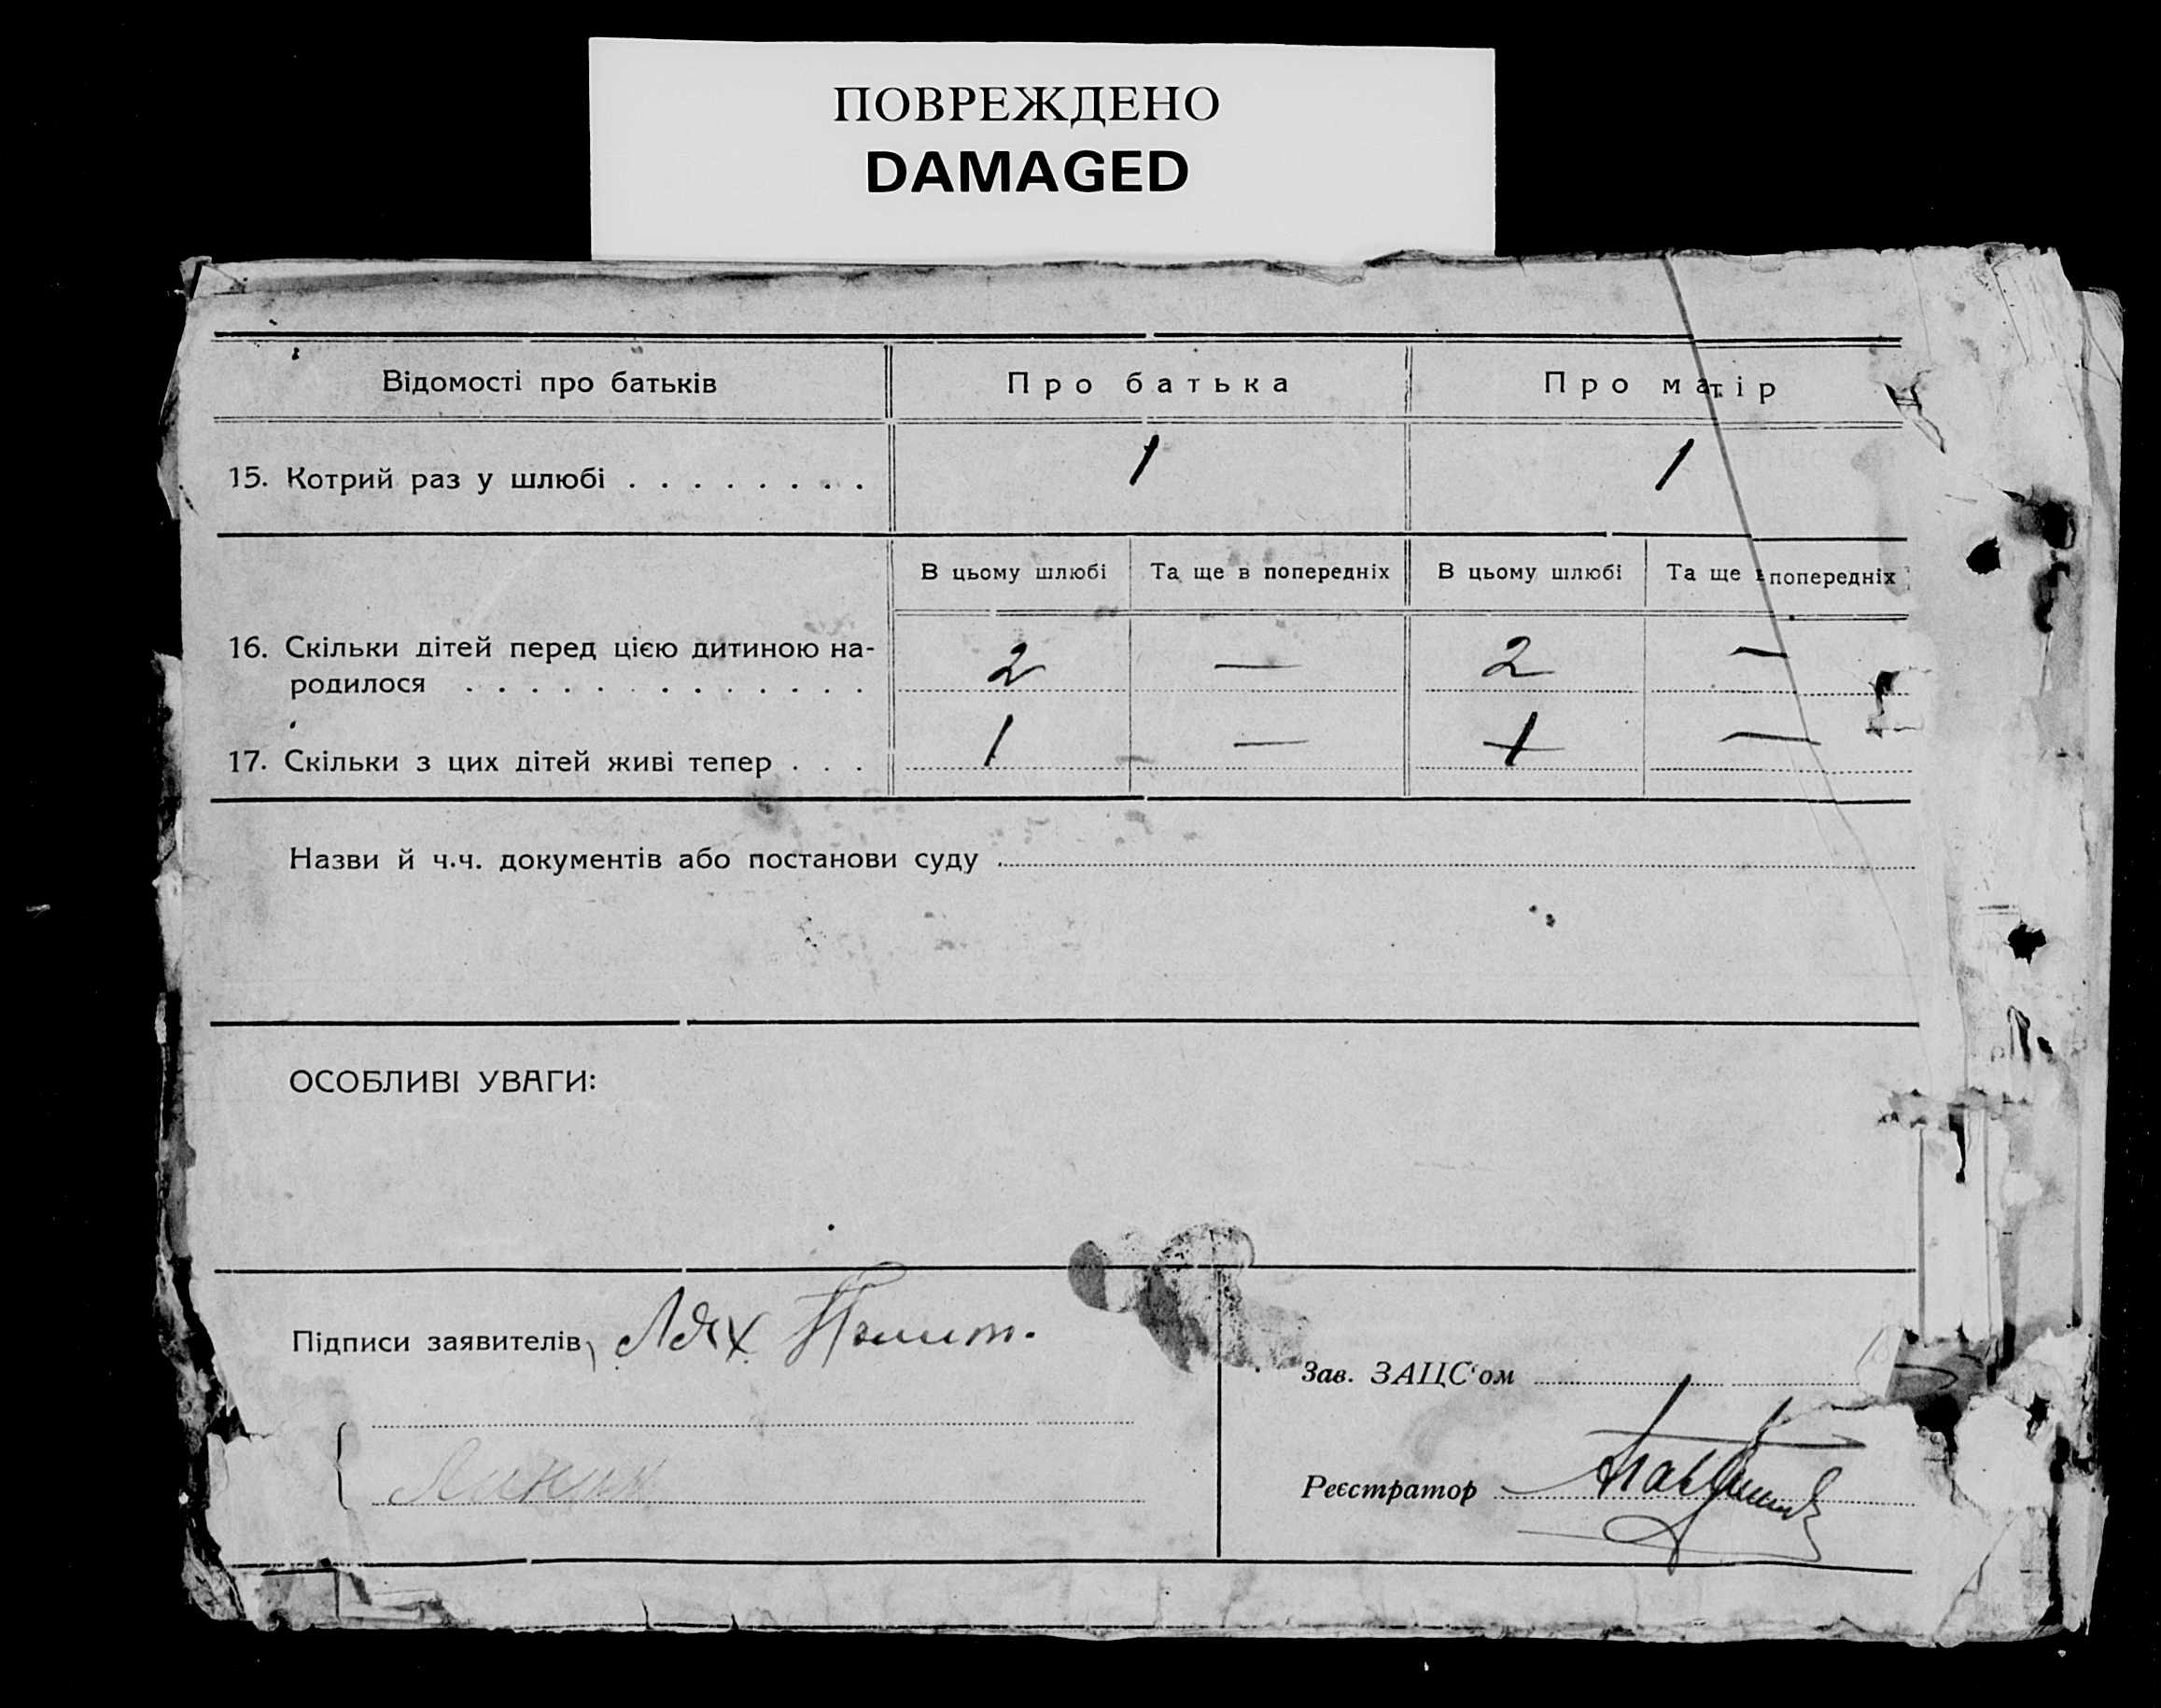 ПОВРЕЖДЕНО
DAMAGED
Відомості про батьків
Про батька
Про матір
15. Котрий раз у шлюбі . . . . . . . .
1
1
В цьому шлюбі
Та ще в попередніх
В цьому шлюбі
Та ще в попередніх
16. Скільки дітей перед цією дитиною на-
родилося . . . . . . . . . . . . .
2
—
2
—
17. Скільки з цих дітей живі тепер . . .
1
—
1
—
Назви й ч.ч. документів або постанови суду
ОСОБЛИВІ УВАГИ:
Підписи заявителів Лях
Зав. ЗАЦС‘ом
Реєстратор